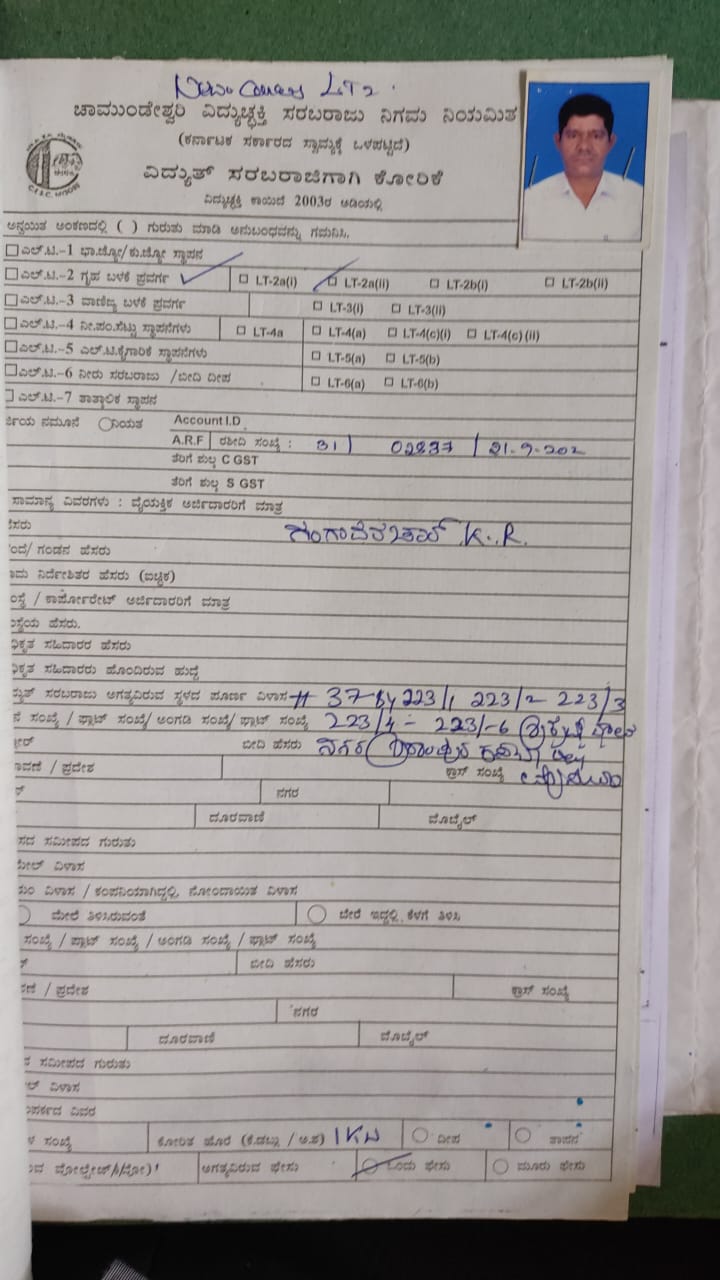 LT2
ಚಾಮುಂಡೇಶ್ವರಿ ವಿದ್ಯುಚ್ಛಕ್ತಿ ಸರಬರಾಜು ನಿಗಮ ನಿಯಮಿತ
(ಕರ್ನಾಟಕ ಸರ್ಕಾರದ ಸ್ವಾಮ್ಯಕ್ಕೆ ಒಳಪಟ್ಟಿದೆ)
ವಿದ್ಯುತ್ ಸರಬರಾಜಿಗಾಗಿ ಕೋರಿಕೆ
ವಿದ್ಯುಚ್ಛಕ್ತಿ ಕಾಯಿದೆ 2003ರ ಅಡಿಯಲ್ಲಿ
ಅನ್ವಯಿತ ಅಂಕಣದಲ್ಲಿ ( ) ಗುರುತು ಮಾಡಿ ಅನುಬಂಧವನ್ನು ಗಮನಿಸಿ.
ಎಲ್.ಟಿ.-1 ಭಾ.ಜ್ಯೋ/ಕು.ಜ್ಯೋ ಸ್ಥಾಪನ
ಎಲ್.ಟಿ.-2 ಗೃಹ ಬಳಕೆ ಪ್ರವರ್ಗ LT-2a(i) LT-2a(ii) LT-2b(i) LT-2b(ii)
ಎಲ್.ಟಿ.-3 ವಾಣಿಜ್ಯ ಬಳಕೆ ಪ್ರವರ್ಗ LT-3(i) LT-3(ii)
ಎಲ್.ಟಿ.-4 ನೀ.ಪಂ.ಸೆಟ್ಟು ಸ್ಥಾಪನೆಗಳು LT-4a LT-4(a) LT-4(c)(i) LT-4(c)(ii)
ಎಲ್.ಟಿ.-5 ಎಲ್.ಟಿ.ಕೈಗಾರಿಕೆ ಸ್ಥಾಪನೆಗಳು LT-5(a) LT-5(b)
ಎಲ್.ಟಿ.-6 ನೀರು ಸರಬರಾಜು /ಬೀದಿ ದೀಪ LT-6(a) LT-6(b)
ಎಲ್.ಟಿ.-7 ತಾತ್ಕಾಲಿಕ ಸ್ಥಾಪನ
ರ್ಜಿಯ ನಮೂನೆ ನಿಯತ Account I.D
A.R.F ರಶೀದಿ ಸಂಖ್ಯೆ : 31 02237 21-9-202
ತೆರಿಗೆ ಶುಲ್ಕ C GST
ತೆರಿಗೆ ಶುಲ್ಕ S GST
ಸಾಮಾನ್ಯ ವಿವರಗಳು : ವೈಯಕ್ತಿಕ ಅರ್ಜಿದಾರರಿಗೆ ಮಾತ್ರ
ಹೆಸರು K.R.
ಂದೆ/ ಗಂಡನ ಹೆಸರು
ನಾಮ ನಿರ್ದೇಶಿತರ ಹೆಸರು (ಐಚ್ಛಿಕ)
ಸಂಸ್ಥೆ / ಕಾರ್ಪೋರೇಟ್ ಅರ್ಜಿದಾರರಿಗೆ ಮಾತ್ರ
ಸಂಸ್ಥೆಯ ಹೆಸರು.
ಧಿಕೃತ ಸಹಿದಾರರ ಹೆಸರು
ಧಿಕೃತ ಸಹಿದಾರರು ಹೊಂದಿರುವ ಹುದ್ದೆ
ದ್ಯುತ್ ಸರಬರಾಜು ಅಗತ್ಯವಿರುವ ಸ್ಥಳದ ಪೂರ್ಣ ವಿಳಾಸ # 37 223/1 223/2 223/3
ನ ಸಂಖ್ಯೆ / ಫ್ಲಾಟ್ ಸಂಖ್ಯೆ/ ಅಂಗಡಿ ಸಂಖ್ಯೆ/ ಪ್ಲಾಟ್ ಸಂಖ್ಯೆ 223/4 - 223/6
ಬೀದಿ ಹೆಸರು ನಗರ
ಾವಣೆ / ಪ್ರದೇಶ ಕ್ರಾಸ್ ಸಂಖ್ಯೆ
ನಗರ
ದೂರವಾಣಿ ಮೊಬೈಲ್
ಸದ ಸಮೀಪದ ಗುರುತು
ಮೇಲ್ ವಿಳಾಸ
ಯಂ ವಿಳಾಸ / ಕಂಪನಿಯಾಗಿದ್ದಲ್ಲಿ, ನೋಂದಾಯಿತ ವಿಳಾಸ
ಮೇಲೆ ತಿಳಿಸಿರುವಂತೆ ಬೇರೆ ಇದ್ದಲ್ಲಿ, ಕೆಳಗೆ ತಿಳಿಸಿ
ಸಂಖ್ಯೆ / ಫ್ಲಾಟ್ ಸಂಖ್ಯೆ / ಅಂಗಡಿ ಸಂಖ್ಯೆ / ಪ್ಲಾಟ್ ಸಂಖ್ಯೆ
ಬೀದಿ ಹೆಸರು
ವಣೆ / ಪ್ರದೇಶ ಕ್ರಾಸ್ ಸಂಖ್ಯೆ
ನಗರ
ದೂರವಾಣಿ ಮೊಬೈಲ್
ನ ಸಮೀಪದ ಗುರುತು
ಲ್ ವಿಳಾಸ
ಂಪರ್ಕದ ವಿವರ
ಳ ಸಂಖ್ಯೆ ಕೋರಿತ ಹೊರೆ (ಕಿ.ಡಬ್ಲ್ಯು / ಅ.ಶ) 1KW ದೀಪ ಶಾಪನ
ಅಗತ್ಯವಿರುವ ಫೇಸು ಒಂದು ಫೇಸು ಮೂರು ಫೇಸು